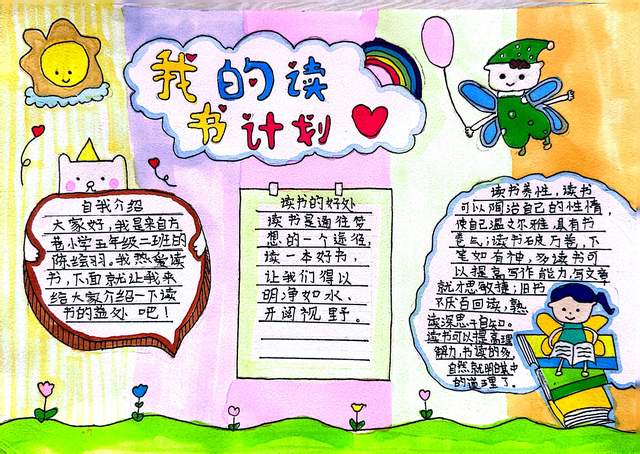 我的读
书计划
自我介绍
大家好,我是来自方
巷小学五年级二班的
陈绘羽。我热爱读
书,下面就让我来
给大家介绍一下读
书的益处 吧!
读书的好处
读书是通往梦
想的一个途径,
读一本好书,
让我们得以
明净如水,
开阔视野。
读书养性,读书
可以陶冶自己的性情,
使自己温文尔雅,具有书
卷气;读书破万卷,下
笔如有神,多读书可
以提高写作能力,写文章
就才思敏捷;旧书
不厌百回读,熟
读深思子自知。
读书可以提高理
解力,书读的多,
自然就明白其中
的道理了。